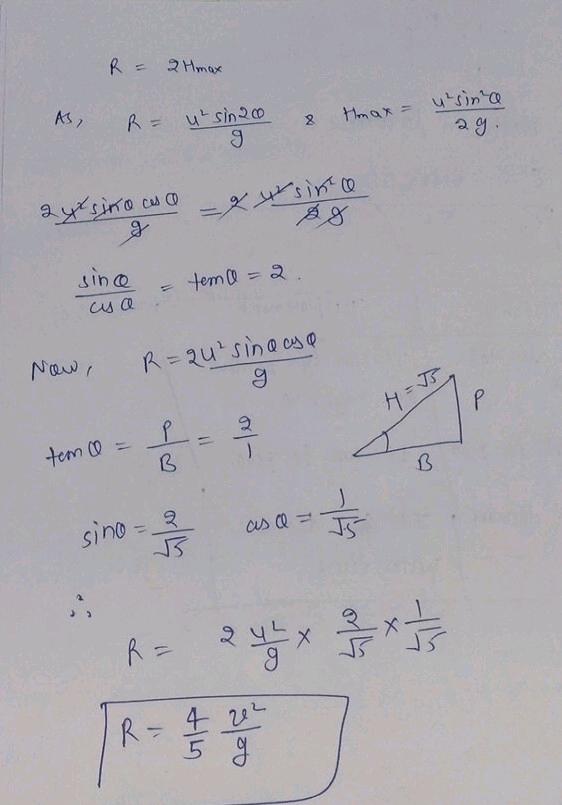 R = 2Hmax
As, R = u² sin2θ / g & Hmax = u² sin²θ / 2g.
2u² sinθ cosθ / g = 2 u² sin²θ / 2g
sinθ / cosθ = tanθ = 2.
Now, R = 2u² sinθ cosθ / g
tanθ = P / B = 2 / 1
H = √5
P
B
sinθ = 2 / √5 cosθ = 1 / √5
∴
R = 2 u² / g × 2 / √5 × 1 / √5
R = 4 / 5 u² / g